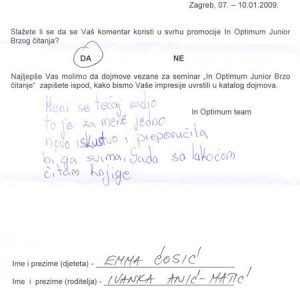 Zagreb, 07. – 10.01.2009.
Slažete li se da se Vaš komentar koristi u svrhu promocije In Optimum Junior
Brzog čitanja?
DA NE
Najljepše Vas molimo da dojmove vezane za seminar „In Optimum Junior Brzo
čitanje" zapišete ispod, kako bismo Vaše impresije uvrstili u katalog dojmova.
In Optimum team
Meni se tečaj svidio
to je za mene jedno
novo iskustvo i preporučila
bi ga svima. Sada sa lakoćom
čitam knjige
Ime i prezime (djeteta) - EMMA ĆOSIĆ
Ime i prezime (roditelja) - IVANKA ANIĆ-MATIĆ